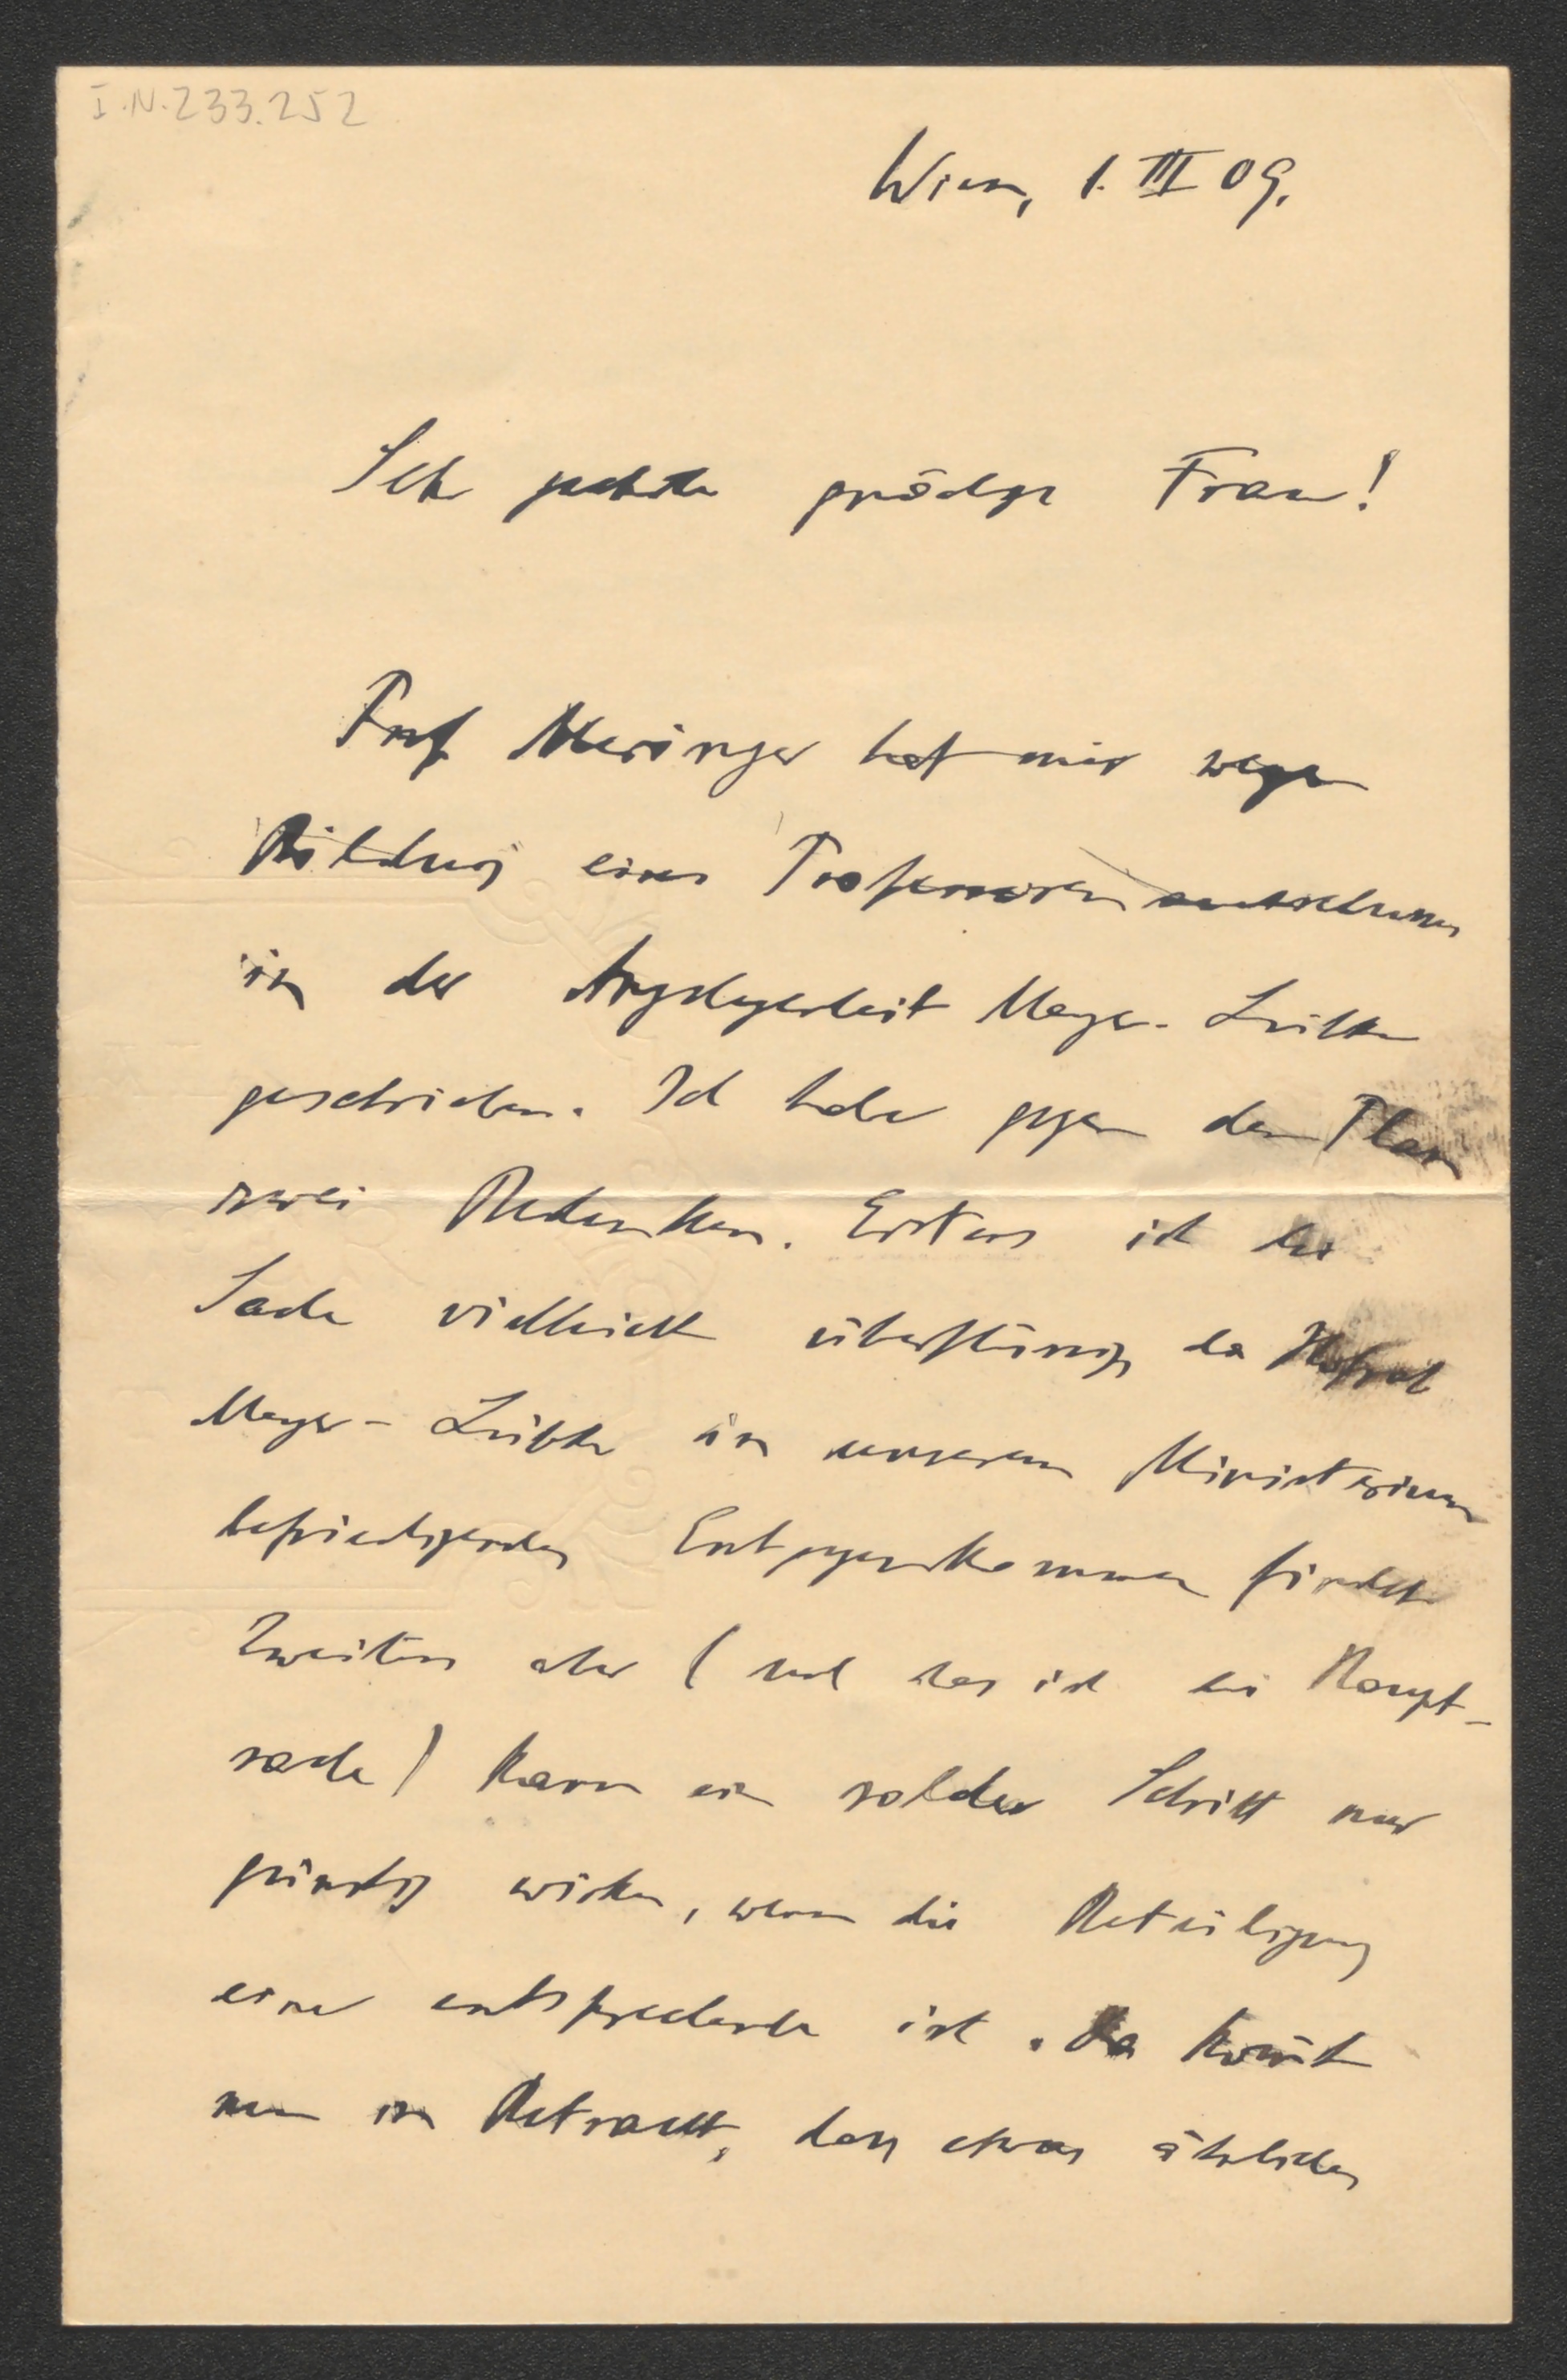 I.N. 233.252
Wien, 1. III 09.
Sehr geehrte gnädige Frau!
Prof. Meringer hat mir wegen
Bildung eines Professorenausschusses
in der Angelegenheit Meyer-Lübke
geschrieben. Ich habe gegen den Plan
zwei Bedenken. Erstens ist die
Sache vielleicht überflüssig da Hofrat
Meyer-Lübke in unserem Ministerium
befriedigendes Entgegenkommen findet
Zweitens aber (und das ist die Haupt-
sache) kann ein solcher Schritt nur
günstig wirken, wenn die Beteiligung
eine entsprechende ist. Da kom̄t
nun in Betracht, dass etwas ähnliches